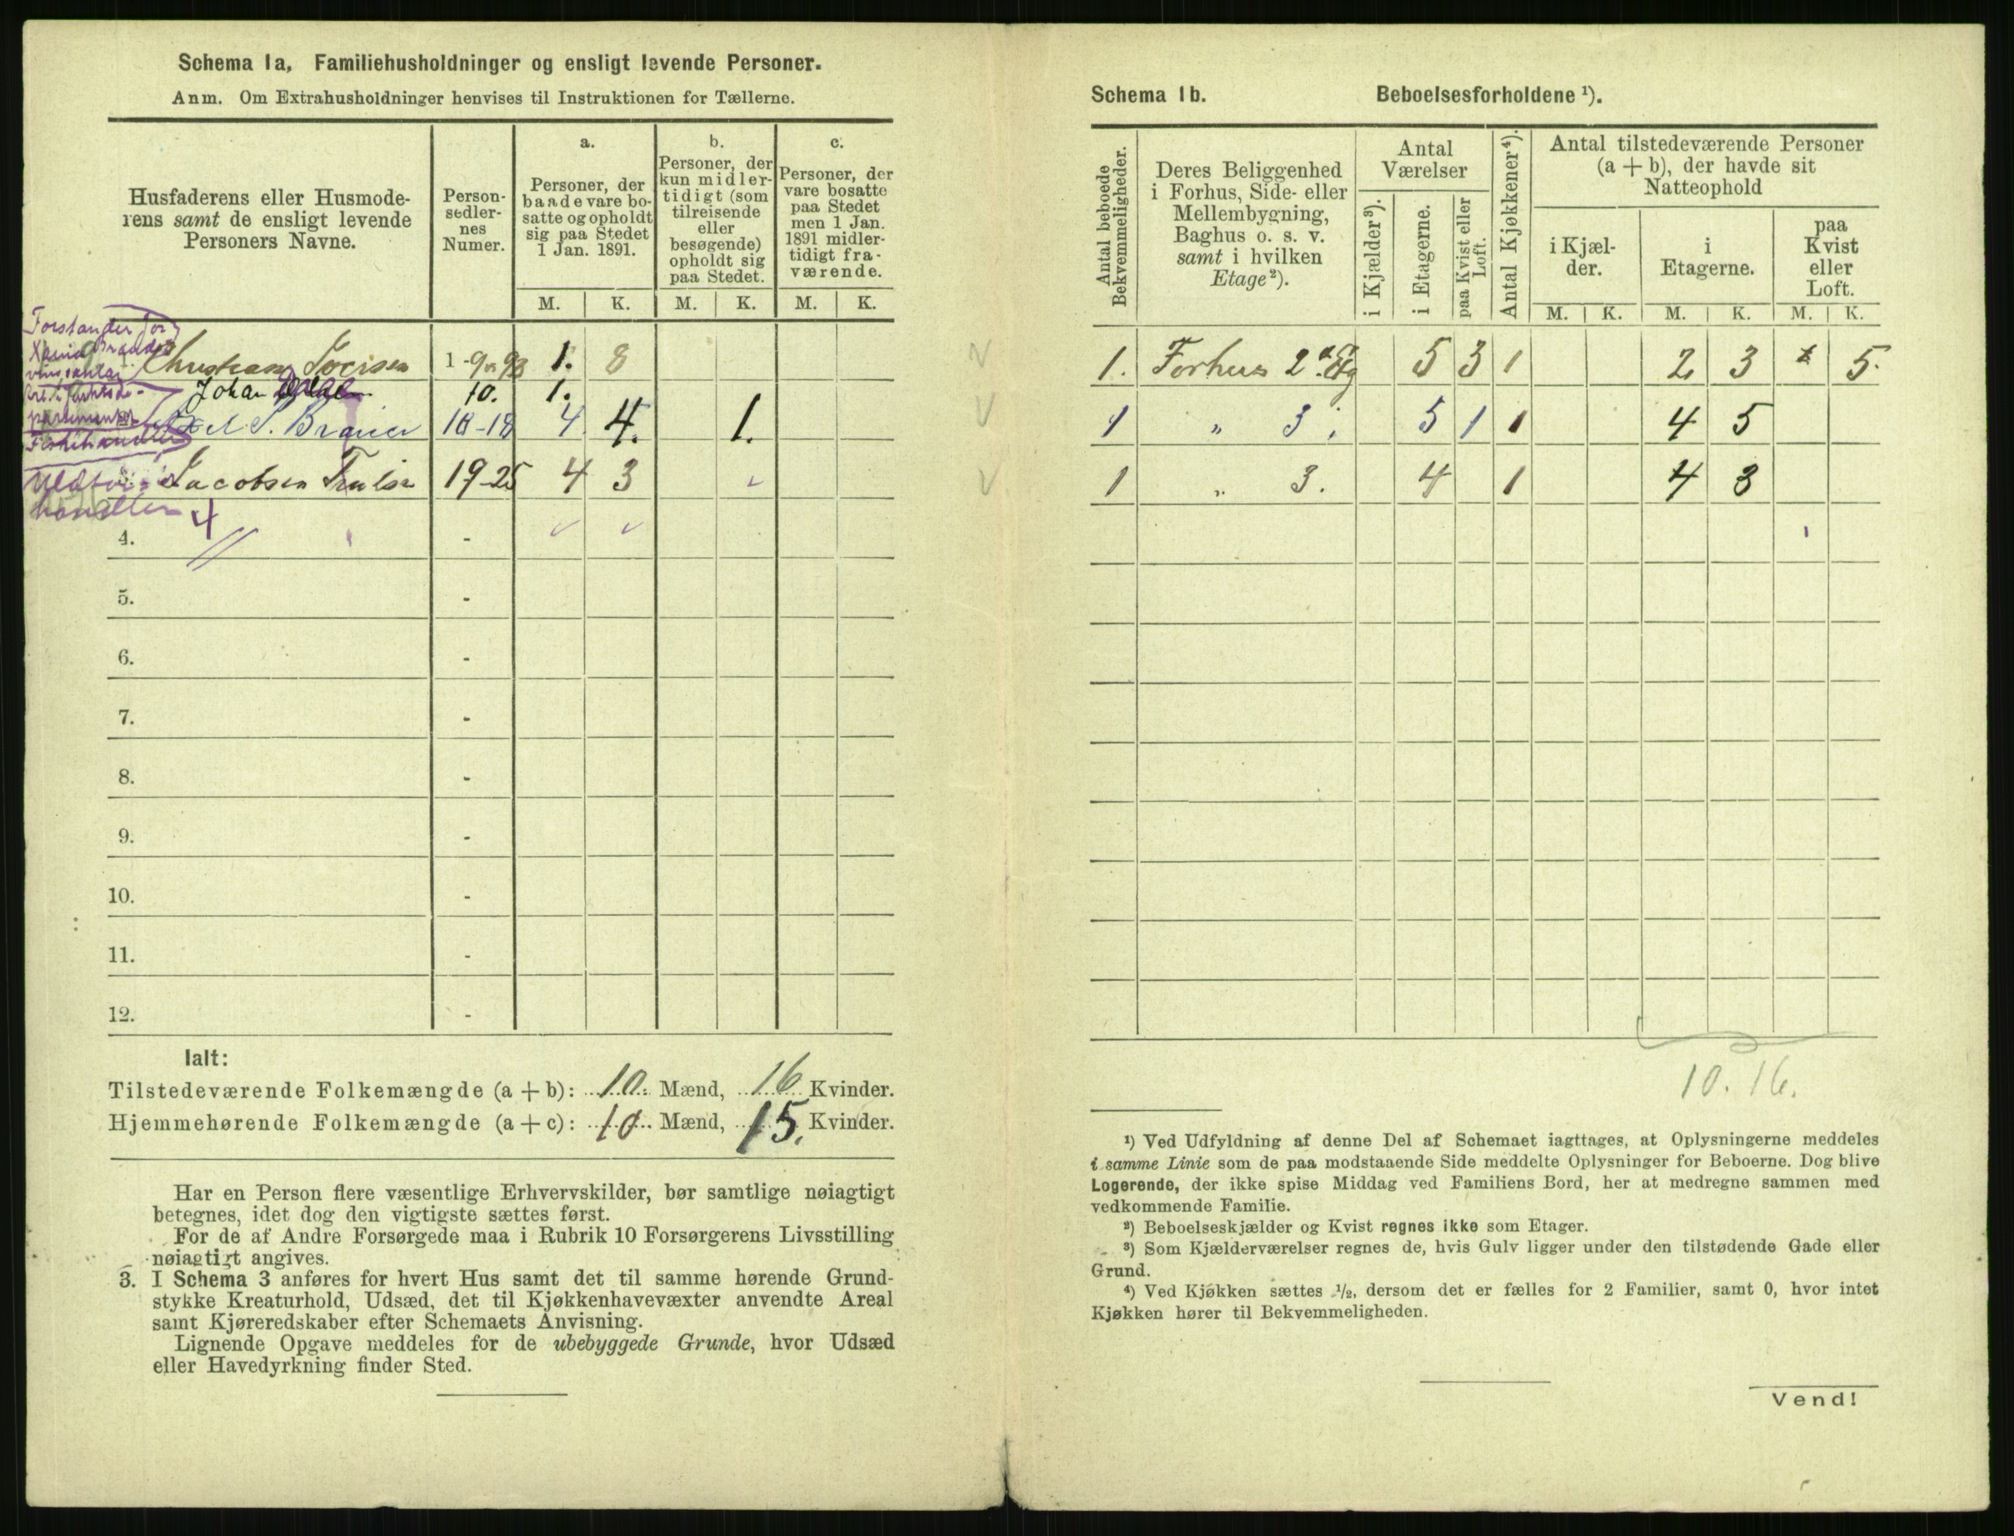 Schema 1a, Familiehusholdninger og ensligt levende Personer.
Anm. Om Extrahusholdninger henvises til Instruktionen for Tællerne.
Husfaderens eller Husmode-
rens samt de ensligt levende
Personers Navne.
Person-
sedler-
nes
Numer.
a.
Personer, der
baade vare bo-
satte og opholdt
sig paa Stedet
1 Jan. 1891.
b.
Personer, der
kun midler-
tidigt (som
tilreisende
eller
besøgende)
opholdt sig
paa Stedet.
c.
Personer, der
vare bosatte
paa Stedet
men 1 Jan.
1891 midler-
tidigt fra-
værende.
M. K. M. K. M. K.
Forstander for
Christian 1. 8
Johan 10. 1.
Braner 18-18 4. 4. 1.
Jacobsen 19-25 4 3
handler
4. -
5. -
6. -
7. -
8. -
9. -
10. -
11. -
12. -
Ialt:
Tilstedeværende Folkemængde (a + b): 10. Mænd, 16 Kvinder.
Hjemmehørende Folkemængde (a + c): 10 Mænd, 15. Kvinder.
Har en Person flere væsentlige Erhvervskilder, bør samtlige nøiagtigt
betegnes, idet dog den vigtigste sættes først.
For de af Andre Forsørgede maa i Rubrik 10 Forsørgerens Livsstilling
nøiagtigt angives.
3. I Schema 3 anføres for hvert Hus samt det til samme hørende Grund-
stykke Kreaturhold, Udsæd, det til Kjøkkenhavevæxter anvendte Areal
samt Kjøreredskaber efter Schemaets Anvisning.
Lignende Opgave meddeles for de ubebyggede Grunde, hvor Udsæd
eller Havedyrkning finder Sted.
Schema 1b. Beboelsesforholdene ¹).
Antal beboede
Bekvemmeligheder.
Deres Beliggenhed
i Forhus, Side- eller
Mellembygning,
Baghus o. s. v.
samt i hvilken
Etage²).
Antal
Værelser
i Kjælder³).
i Etagerne.
paa Kvist eller
Loft.
Antal Kjøkkener⁴).
Antal tilstedeværende Personer
(a + b), der havde sit
Natteophold
i Kjæl-
der.
i
Etagerne.
paa
Kvist
eller
Loft.
M. K. M. K. M. K.
1. Forhus 2 Etg 5 3 1 2 3 5.
1 " 3. 5 1 1 4 5
1 " 3. 4 1 4 3
10. 16.
¹) Ved Udfyldning af denne Del af Schemaet iagttages, at Oplysningerne meddeles
i samme Linie som de paa modstaaende Side meddelte Oplysninger for Beboerne. Dog blive
Logerende, der ikke spise Middag ved Familiens Bord, her at medregne sammen med
vedkommende Familie.
²) Beboelseskjælder og Kvist regnes ikke som Etager.
³) Som Kjælderværelser regnes de, hvis Gulv ligger under den tilstødende Gade eller
Grund.
⁴) Ved Kjøkken sættes ½, dersom det er fælles for 2 Familier, samt 0, hvor intet
Kjøkken hører til Bekvemmeligheden.
Vend!